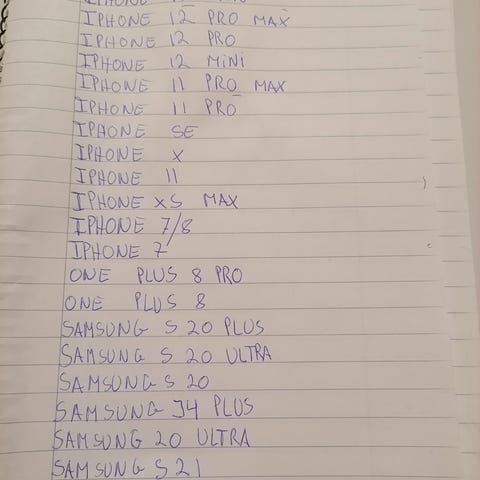 IPHONE 12 PRO MAX
IPHONE 12 PRO
IPHONE 12 MINI
IPHONE 11 PRO MAX
IPHONE 11 PRO
IPHONE SE
IPHONE X
IPHONE 11
IPHONE XS MAX
IPHONE 7/8
IPHONE 7
ONE PLUS 8 PRO
ONE PLUS 8
SAMSUNG S 20 PLUS
SAMSUNG S 20 ULTRA
SAMSUNG S 20
SAMSUNG J4 PLUS
SAMSUNG 20 ULTRA
SAMSUNG S21